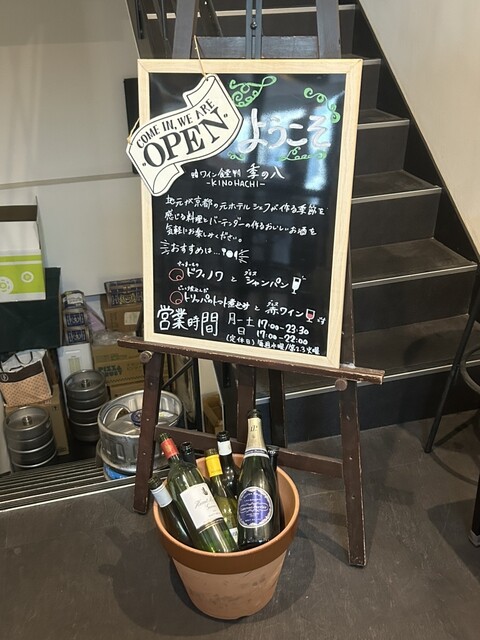 COME IN, WE ARE
OPEN
ようこそ
季の八
-KINOHACHI-
地元が京都の元ホテルシェフが作る季節を
感じる料理とバーテンダーの作るおいしいお酒を
気軽にお楽しみください。
おすすめは…
と グラス シャンパン
トリッパのトマト煮込み と 赤ワイン
営業時間 月-土 17:00-23:30
日 17:00-22:00
(定休日)毎週水曜/第2.3火曜